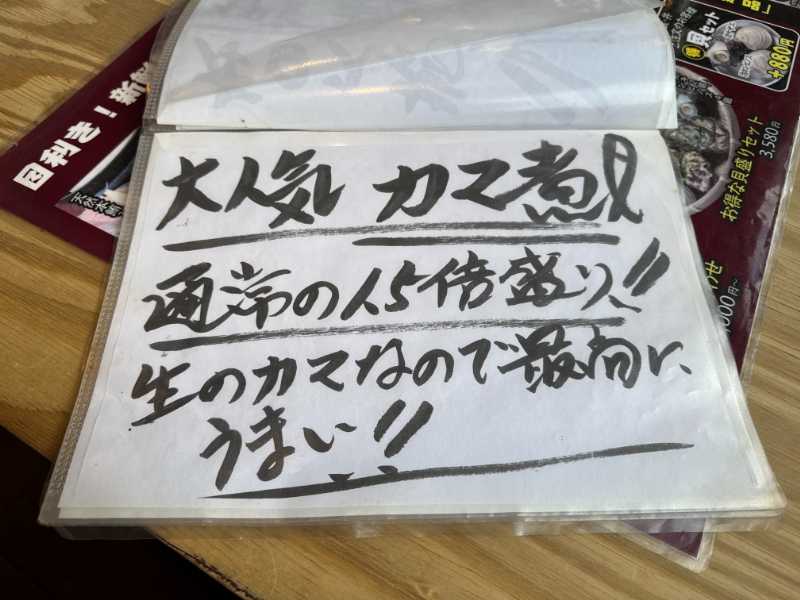 大人気 カマ煮!
通常の1.5倍盛り!!
生のカマなので最高に、
うまい!!
目利き!新鮮
天然本鮪
貝セット
+880円
お得な貝盛りセット
3,580円